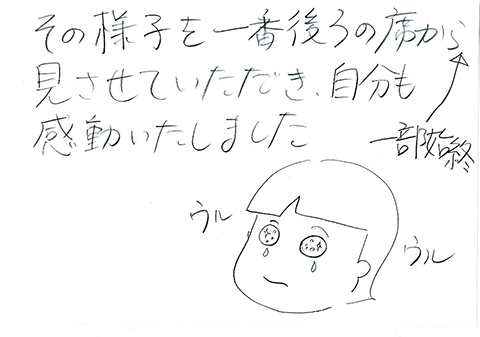 その様子を一番後ろの席から
見させていただき、自分も
感動いたしました
一部始終
ウル
ウル